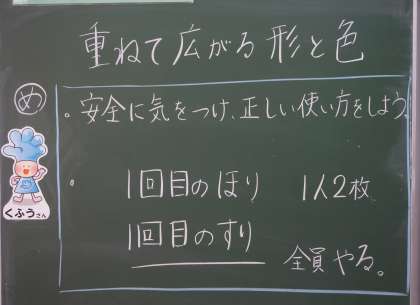 重ねて広がる形と色
め
。安全に気をつけ、正しい使い方をしよう。
。1回目のほり 1人2枚
くふうさん
1回目のすり 全員やる。